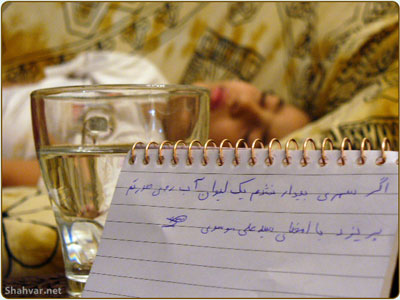 اگر سحری بیدار نشدم یک لیوان آب روی صورتم
بریزید با امضای سید علی موسوی
Shahvar.net